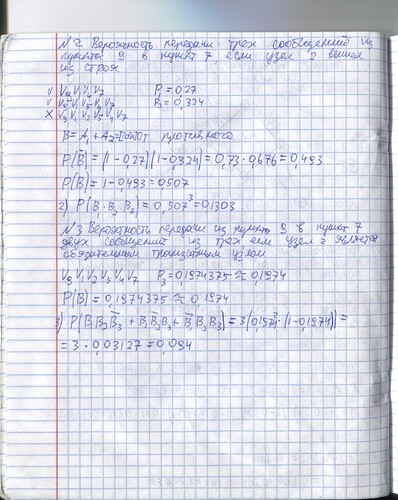 №2 Вероятность передачи трех сообщений из
пункта 9 в пункт 7, если узел 2 вышел
из строя
V V₉ V₁ V₄ V₇ P₁=0,27
V V₉ V₅ V₁ V₄ V₇ P₂=0,324
X V₉ V₁ V₂ V₅ V₄ V₇
B=A₁+A₂= от противного
P(B̄)=(1-0,27)(1-0,324)=0,73·0,676=0,493
P(B)=1-0,493=0,507
2) P(B₁·B₂·B₃)=0,507³=0,1303
№3 Вероятность передачи из пункта 9 в пункт 7
двух сообщений из трех если узел 2 является
обязательным транзитным узлом
V₉ V₁ V₂ V₅ V₄ V₇ P₃=0,1974375≈0,1974
P(B)=0,1974375≈0,1974
3) P(B₁B₂B̄₃+B₁B̄₂B₃+B̄₁B₂B₃)=3(0,1974²·(1-0,1974))=
=3·0,03127=0,094